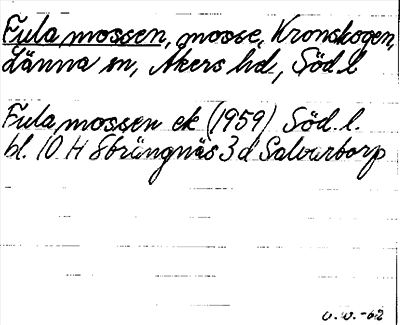 Fula mossen, mosse, Kronskogen,
Länna sn, Åkers hd., Söd. l.
Fula mossen ek (1959) Söd. l.
bl. 10 H Strängnäs 3 d Salvartorp
U.W.-62